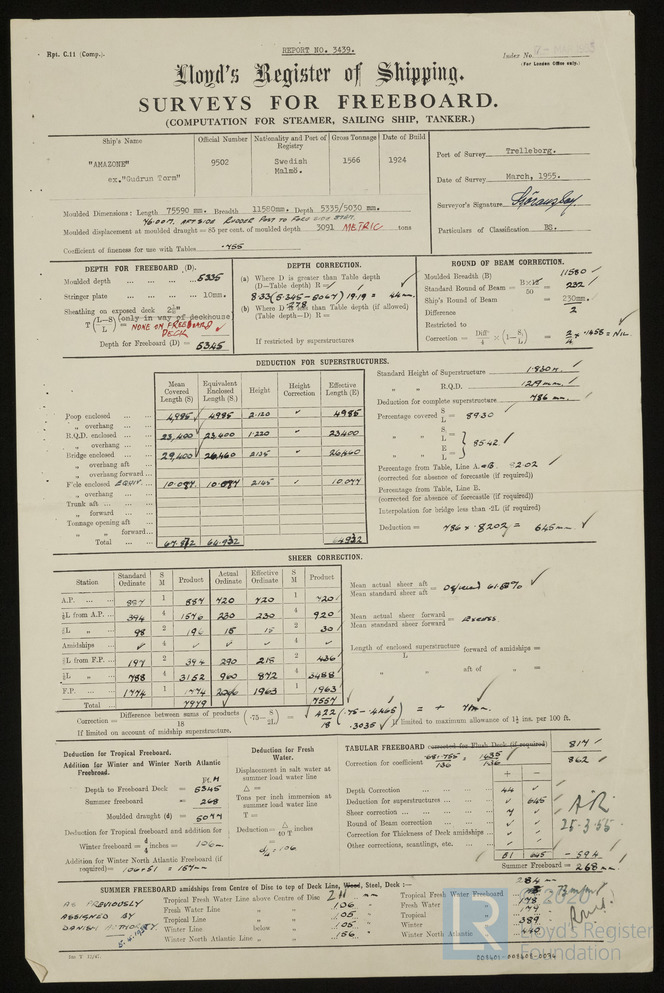 REPORT NO. 3439.
Rpt. C.11 (Comp.).
Index No.
(For London Office only.)
Lloyd's Register of Shipping.
SURVEYS FOR FREEBOARD.
(COMPUTATION FOR STEAMER, SAILING SHIP, TANKER.)
Ship's Name Official Number Nationality and Port of Registry Gross Tonnage Date of Build
"AMAZONE" 9502 Swedish 1566 1924
ex."Gudrun Torm" Malmö.
Port of Survey Trelleborg.
Date of Survey March, 1955.
Surveyor's Signature
Particulars of Classification BS.
Moulded Dimensions: Length 75590 mm. Breadth 11580mm. Depth 5335/5030 mm.
Moulded displacement at moulded draught = 85 per cent. of moulded depth 3091 METRIC tons
Coefficient of fineness for use with Tables .755
DEPTH FOR FREEBOARD (D).
Moulded depth 5335
Stringer plate 10mm.
Sheathing on exposed deck
(only in way of deckhouse)
T (L-S)/L = NONE ON FREEBOARD DECK
Depth for Freeboard (D) = 5345
DEPTH CORRECTION.
(a) Where D is greater than Table depth
(D—Table depth) R =
8.33 (5.345-5.0467) 19.19 = 44mm.
(b) Where D is less than Table depth (if allowed)
(Table depth—D) R =
If restricted by superstructures
ROUND OF BEAM CORRECTION.
Moulded Breadth (B) 11580
Standard Round of Beam = B×12/50 = 232
Ship's Round of Beam = 230mm.
Difference 2
Restricted to
Correction = Diff/4 × (1-S/L) = 2/4 × .1458 = NIL
DEDUCTION FOR SUPERSTRUCTURES.
Mean Covered Length (S) Equivalent Enclosed Length (S₁) Height Height Correction Effective Length (E)
Poop enclosed 4985 4985 2.120 4985
„ overhang
R.Q.D. enclosed 23,400 23,400 1.220 23400
„ overhang
Bridge enclosed 29,400 26,460 2.135 26,460
„ overhang aft
„ overhang forward
F'cle enclosed EQUIV. 10.087 10.087 2.165 10.087
„ overhang
Trunk aft
„ forward
Tonnage opening aft
„ „ forward
Total 67.872 64.932 64932
Standard Height of Superstructure 1.830m.
„ „ R.Q.D. 1219mm.
Deduction for complete superstructure 786 mm.
Percentage covered S/L = 89.30
„ „ S₁/L =
„ „ E/L = 85.42
Percentage from Table, Line A. 82.02
(corrected for absence of forecastle (if required))
Percentage from Table, Line B.
(corrected for absence of forecastle (if required))
Interpolation for bridge less than ·2L (if required)
Deduction = 786 × .8202 = 645mm
SHEER CORRECTION.
Station Standard Ordinate S M Product Actual Ordinate Effective Ordinate S M Product
A.P. 887 1 887 720 720 1 720
⅙L from A.P. 394 4 1576 230 230 4 920
⅓L „ 98 2 196 15 15 2 30
Amidships 4 4
⅓L from F.P. 197 2 394 290 218 2 436
⅙L „ 788 4 3152 960 872 4 3488
F.P. 1774 1 1774 1963 1 1963
Total 7979 7557
Mean actual sheer aft
Mean standard sheer aft =
Mean actual sheer forward
Mean standard sheer forward = Excess.
Length of enclosed superstructure forward of amidships =
L
„ aft of „ =
Correction = Difference between sums of products / 18 (·75—S/2L) = 422/18 (.75-.4465) = + 7mm.
.3035
If limited on account of midship superstructure.
If limited to maximum allowance of 1½ ins. per 100 ft.
Deduction for Tropical Freeboard.
Addition for Winter and Winter North Atlantic Freeboard.
Depth to Freeboard Deck = 5345
Summer freeboard = 268
Moulded draught (d) = 5077
Deduction for Tropical freeboard and addition for
Winter freeboard = d/4 inches = 106m
Addition for Winter North Atlantic Freeboard (if
required) = 106+51 = 157mm
Deduction for Fresh Water.
Displacement in salt water at
summer load water line
Δ =
Tons per inch immersion at
summer load water line
T =
Deduction = Δ/40 T inches
= 106
TABULAR FREEBOARD corrected for Flush Deck (if required) 817
Correction for coefficient .68+.755/1.36 = 1.435/1.36 862
+ -
Depth Correction 44
Deduction for superstructures 645
Sheer correction 7
Round of Beam correction
Correction for Thickness of Deck amidships
Other corrections, scantlings, etc.
51 645 -594
Summer Freeboard = 268mm
AR
25-3-55
SUMMER FREEBOARD amidships from Centre of Disc to top of Deck Line, Wood, Steel, Deck :— 284
AS PREVIOUSLY
ASSIGNED BY
DANISH AUTHORITY
Tropical Fresh Water Line above Centre of Disc 211 mm
Fresh Water Line „ „ 106
Tropical Line „ „ 105
Winter Line below „ 105
Winter North Atlantic Line „ „ 156
Tropical Fresh Water Freeboard
Fresh Water „ 178
Tropical „ 179
Winter „ 389
Winter North Atlantic „ 440
© 2020
LR
Lloyd's Register
Foundation
008601-008608-0036